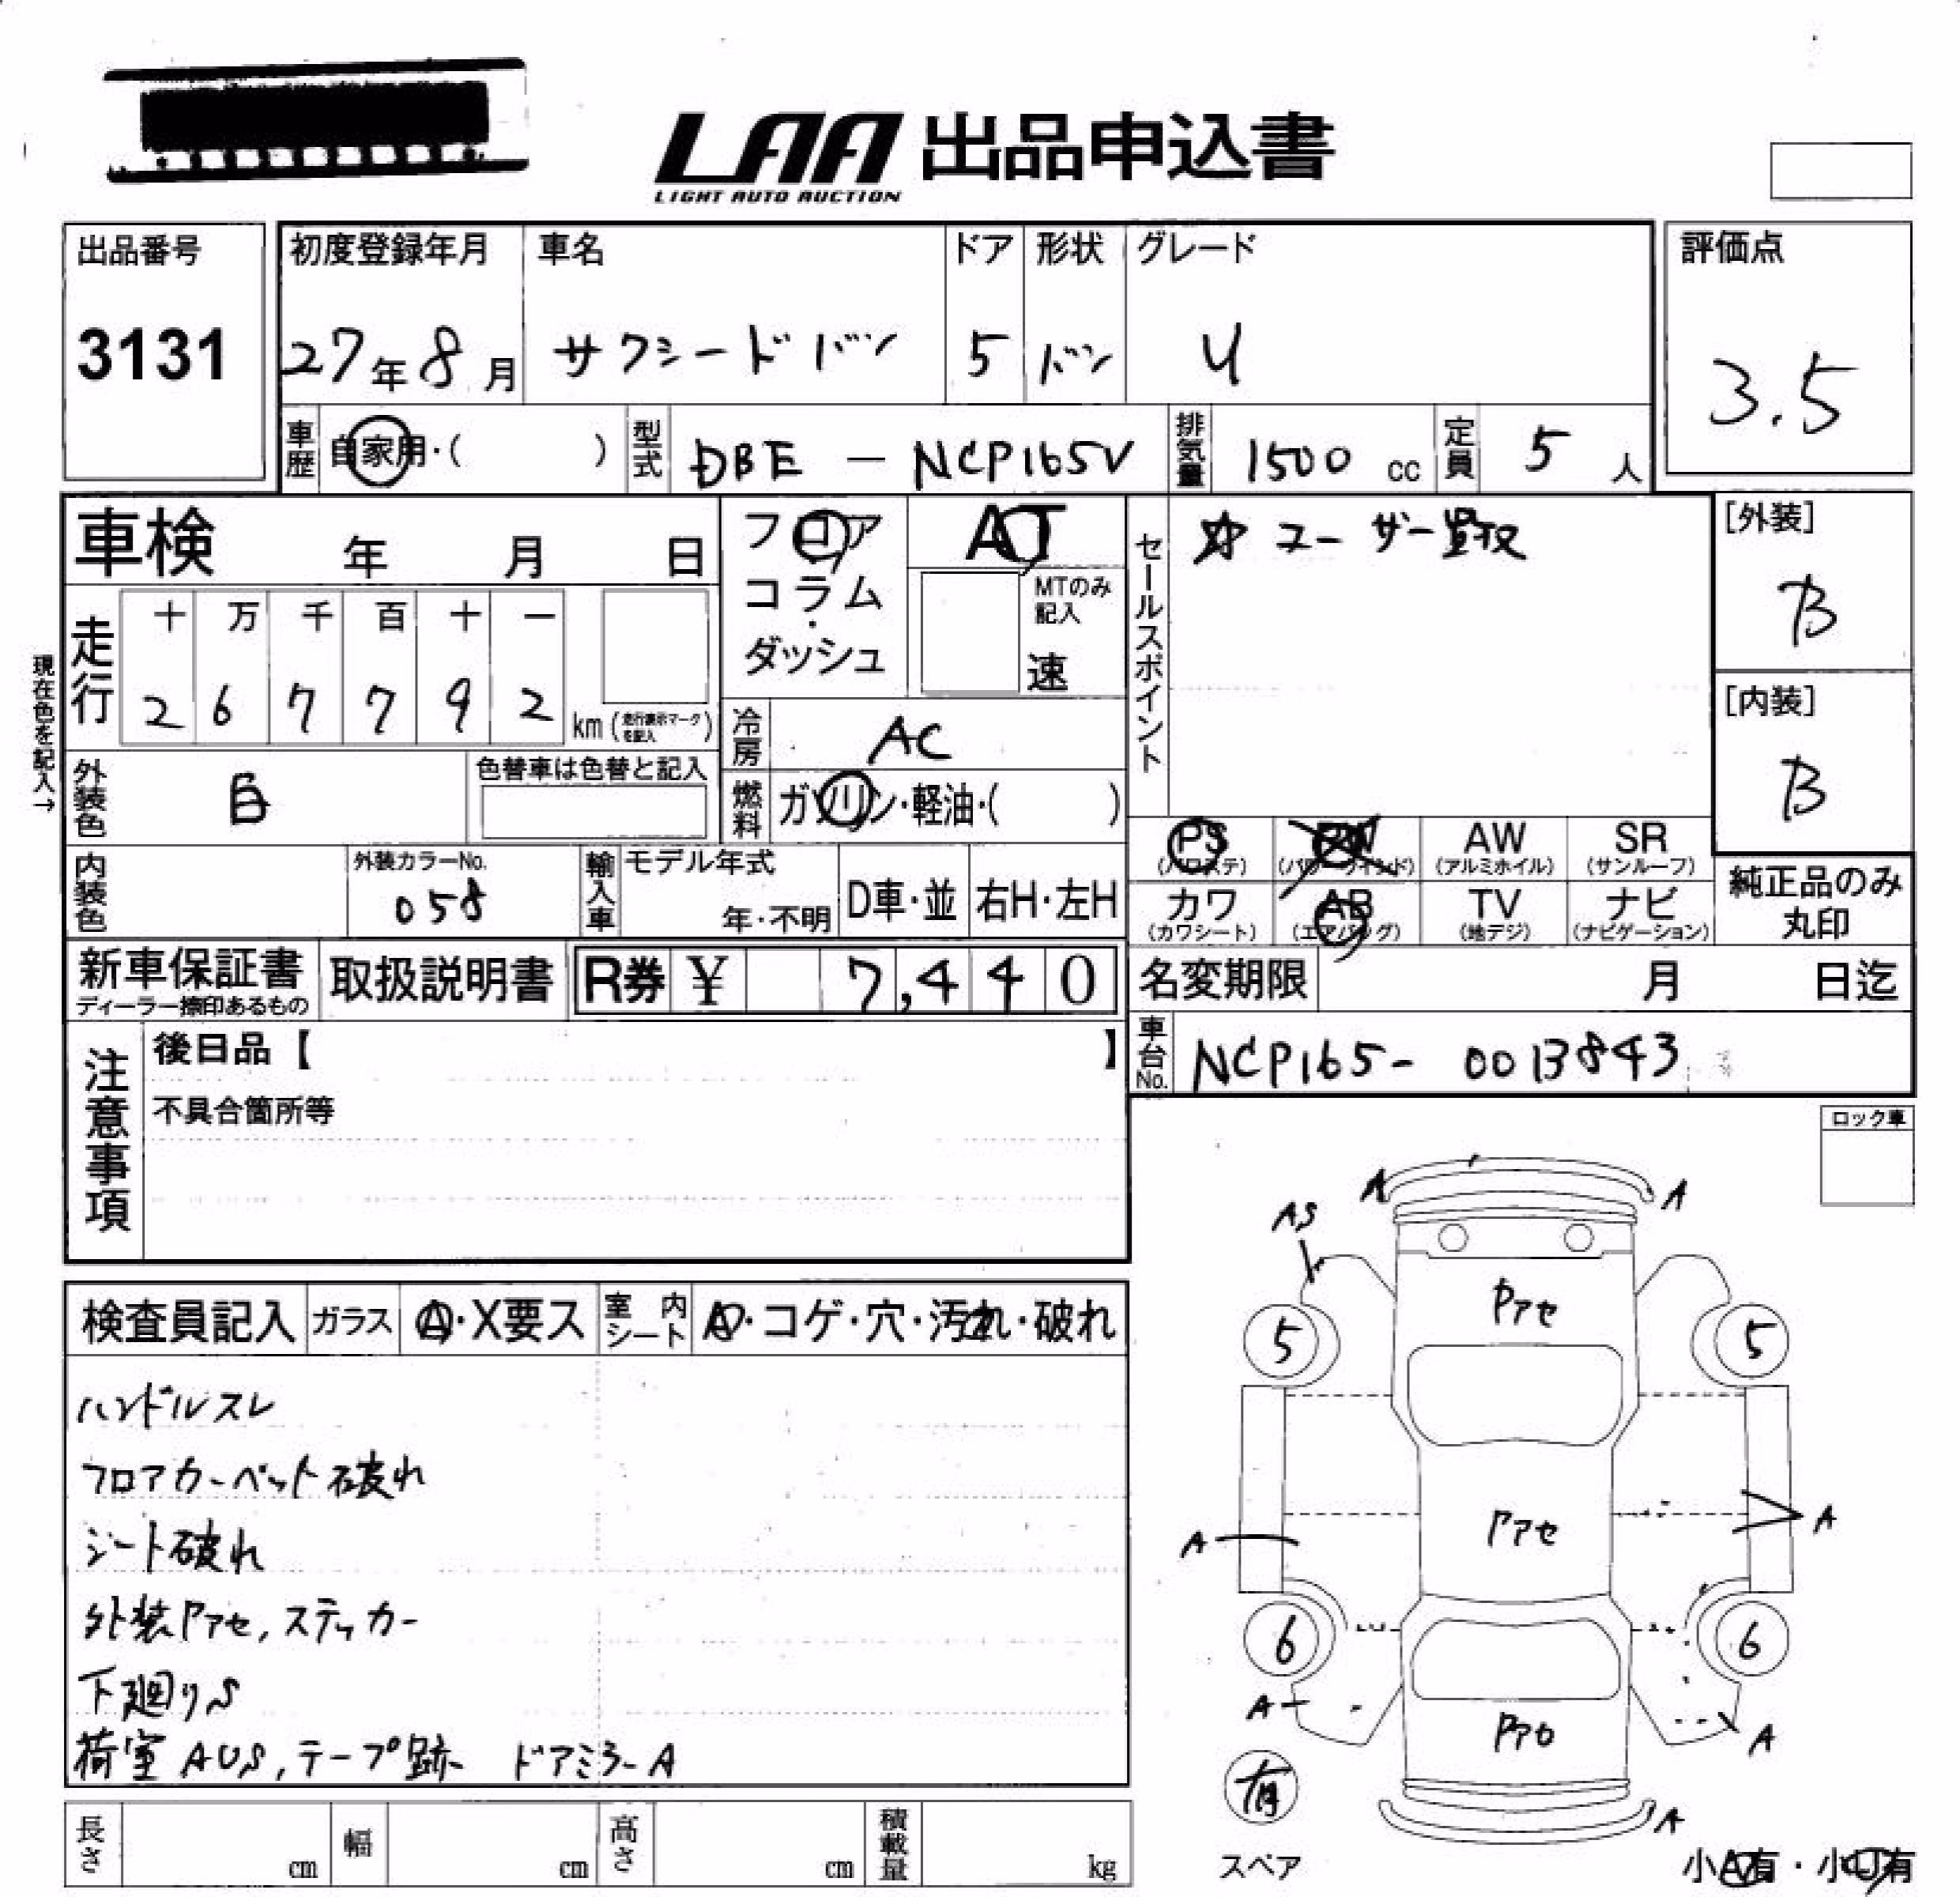 LAA 出品申込書
LIGHT AUTO AUCTION
出品番号
3131
初度登録年月
27年8月
車名
サクシードバン
ドア
5
形状
バン
グレード
U
評価点
3.5
車歴 自家用・( )
型式 DBE - NCP165V
排気量 1500 cc
定員 5 人
車検 年 月 日
フロア
コラム
・
ダッシュ
AT
MTのみ
記入
速
セールスポイント
☆ ユーザー買取
[外装]
B
[内装]
B
現在色を記入→
走行
十 万 千 百 十 一
2 6 7 7 9 2 km (走行表示マークを記入)
冷房 AC
燃料 ガソリン・軽油・( )
外装色 白
色替車は色替と記入
内装色
外装カラーNo.
058
輸入車
モデル年式
年・不明
D車・並
右H・左H
PS
(パワステ)
PW
(パワーウインド)
AW
(アルミホイル)
SR
(サンルーフ)
カワ
(カワシート)
AB
(エアバッグ)
TV
(地デジ)
ナビ
(ナビゲーション)
純正品のみ
丸印
新車保証書
ディーラー捺印あるもの
取扱説明書
R券 ¥ 7,440
名変期限 月 日迄
車台No. NCP165- 0013843
注意事項
後日品【 】
不具合箇所等
ロック車
検査員記入 ガラス A・X要ス 室内シート A・コゲ・穴・汚れ・破れ
ハンドルスレ
フロアカーペット破れ
シート破れ
外装Pアセ,ステッカー
下廻りS
荷室 AUS,テープ跡 ドアミラーA
A
A
AS
Pアセ
5
5
Pアセ
A
A
6
6
A
A
Pアセ
有
スペア
A
小A有・小U有
長さ cm
幅 cm
高さ cm
積載量 kg